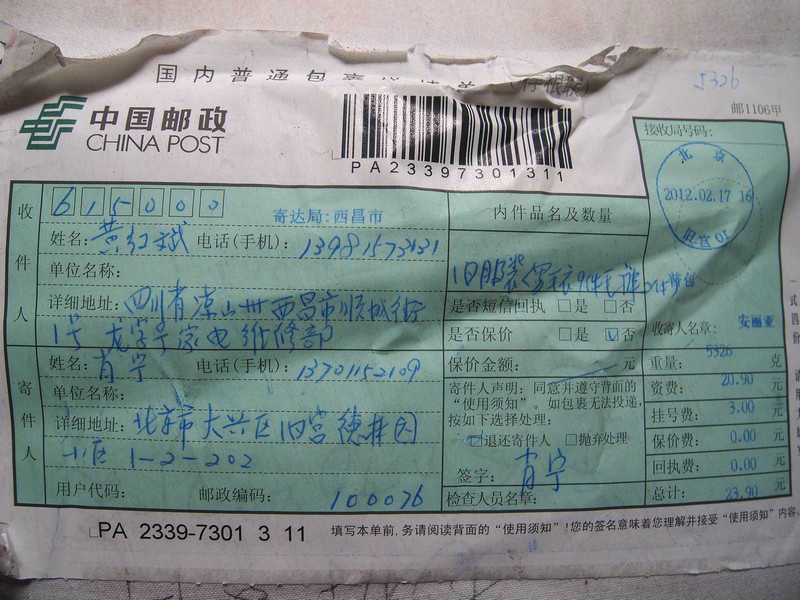 国内普通包裹详情单
5326
邮1106甲
中国邮政
CHINA POST
PA23397301311
接收局号码:
北京
2012.02.17 16
旧宫 01
收件人
615000
寄达局:西昌市
姓名: 黄红斌 电话(手机): 13981573131
单位名称:
详细地址: 四川省凉山州西昌市顺城街
1号 龙字号家电维修部
寄件人
姓名: 肖宁 电话(手机): 13701152109
单位名称:
详细地址: 北京市大兴区旧宫德林园
小区 1-2-202
用户代码: 邮政编码: 100076
内件品名及数量
旧服装
是否短信回执 □是 □否
是否保价 □是 ☑否
保价金额: 元
寄件人声明: 同意并遵守背面的
“使用须知”。如包裹无法投递,
按如下选择处理:
☑退还寄件人 □抛弃处理
签字: 肖宁
检查人员名章:
收寄人名章: 安丽亚
重量: 5326 克
资费: 20.90 元
挂号费: 3.00 元
保价费: 0.00 元
回执费: 0.00 元
总计: 23.90 元
□PA 2339-7301 3 11
填写本单前,务请阅读背面的“使用须知”!您的签名意味着您理解并接受“使用须知”内容。